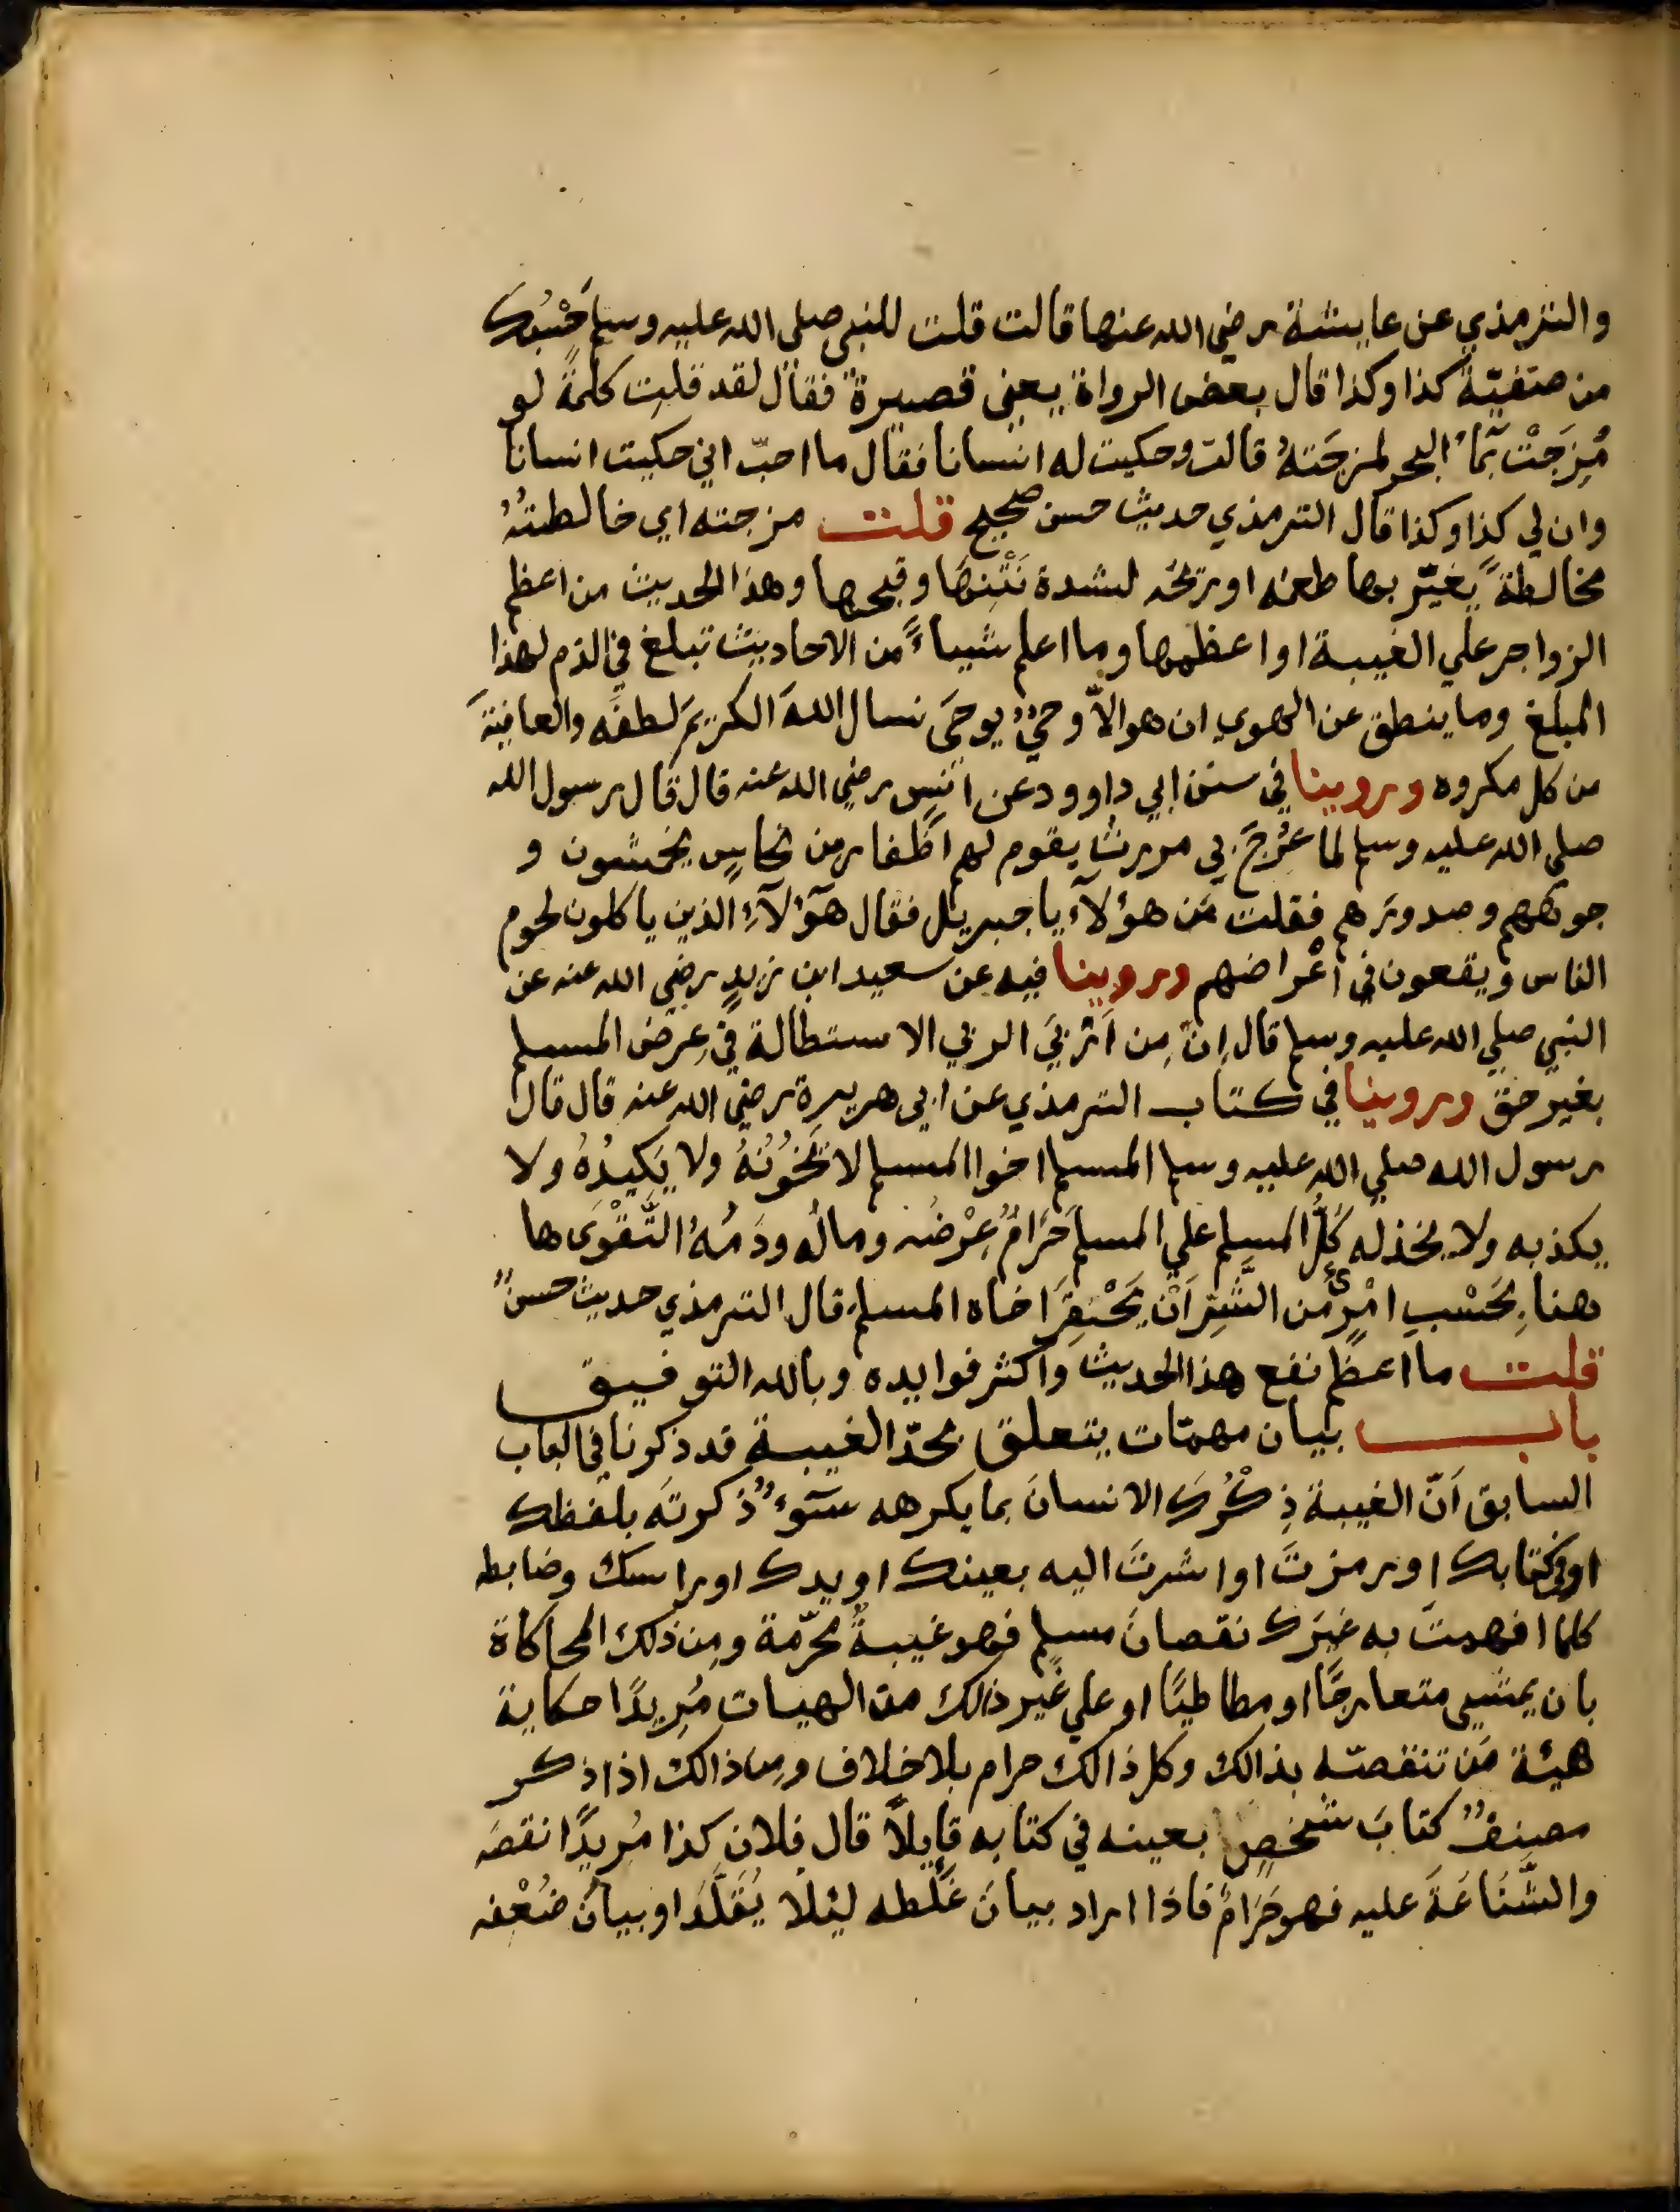 والترمذي عن عايشة رضي الله عنها قالت قلت للنبي صلى الله عليه وسلم حَسْبُك
من صفيّة كذا وكذا قال بعض الرواة يعني قصيرة فقال لقد قلتِ كلمةً لو
مُزِجَتْ بمآء البحر لمزجَتهُ قالت وحكيت له انسانا فقال ما احبّ اني حكيت انسانا
وان لي كذا وكذا قال الترمذي حديث حسن صحيح قلت مزجته اي خالطتهُ
مخالطةً يغيّر بها طعمه او ريحه لشدة نَتْنِهَا وقبحها وهذا الحديث من اعظم
الزواجر علي الغيبة او اعظمها وما اعلم شيباءً من الاحاديث تبلغ في الذم لهذا
المبلغ وما ينطق عن الهوي ان هو الاّ وحيٌ يوحَى نسال اللهَ الكريمَ لطفَه والعافيةَ
من كل مكروه وروينا في سنن ابي داوود عن انسٍ رضي الله عنه قال قال رسول الله
صلي الله عليه وسلم لما عُرِجَ بي مررت بقوم لهم اظفار من نحاسٍ يخمشون و
جوههم وصدورَهم فقلت مَن هؤلآء يا جبريل فقال هؤلآءِ الذين ياكلون لحوم
الناس ويقعون في اعْراضهم وروينا فيه عن سعيد ابن زيدٍ رضي الله عنه عن
النبي صلي الله عليه وسلم قال اِنّ مِن اَرْبَي الربي الاستطالة في عِرض المسلم
بغير حق وروينا في كتاب الترمذي عن ابي هريرة رضي الله عنه قال قال
رسول الله صلي الله عليه وسلم المسلم اخوا المسلم لا يَخُونُهُ ولا يَكيدُهُ ولا
يكذبه ولا يخذله كُلُّ المسلم علي المسلم حَرَامٌ عِرْضُه ومالُه ودَمُهُ التَّقْوَى ها
هنا بِحَسْبِ امْرِئٍ من الشَّرِّ اَنْ يَحْقِرَ اخاه المسلم قال الترمذي حديث حسنٌ
قلت ما اعظم نفع هذا الحديث واكثر فوايده وبالله التوفيق
باب بيان مهمّات يتعلق بحدّ الغيبة قد ذكرنا في الباب
السابق اَنّ الغيبة ذِكْرُك الانسانَ بما يكرهه سَوآءٌ ذكرتَه بلفظك
او في كتابك او رمزتَ او اشرتَ اليه بعينك او يدك او راسك وضابطه
كلما افهمتَ به غيرَك نقصانَ مسلمٍ فهو غيبةٌ محرّمة ومِن ذلك المحاكاة
بان يمشي متعارجًا او مطاطيًا او علي غير ذالك من الهيات مُرِيدًا حكاية
هيئة مَن تنقصّه بذالك وكل ذالك حرام بلا خلاف ومِن ذالك اذا ذكر
مصنفٌ كتابَ شخصٍ بعينه في كتابه قايلاً قال فلان كذا مُريدًا نقصَه
والشَّنَاعَةَ عليه فهو حَرَامٌ فاذا اراد بيانَ غلطه ليئلا يُقَلَّدَ او بيانَ ضُعْفه